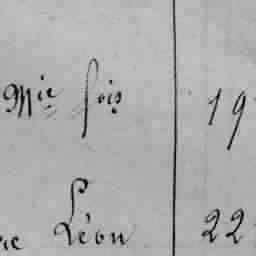 Mie fois 19
ie Léon 22